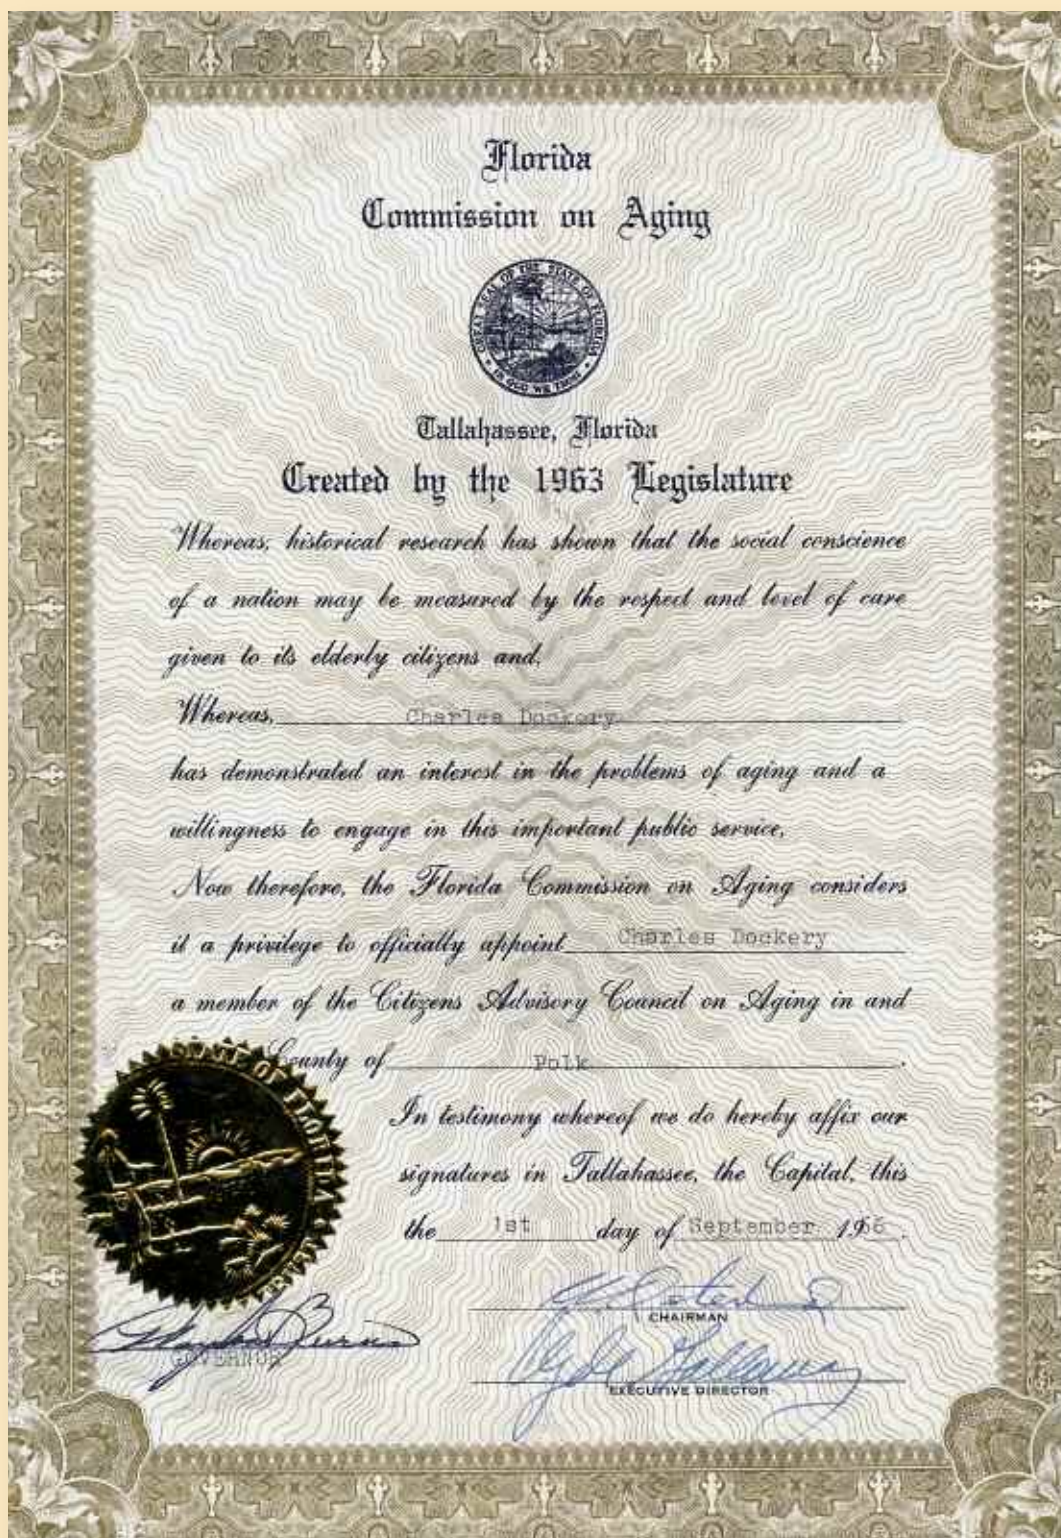 Florida
Commission on Aging
GREAT SEAL OF THE STATE OF FLORIDA
IN GOD WE TRUST
Tallahassee, Florida
Created by the 1963 Legislature
Whereas, historical research has shown that the social conscience
of a nation may be measured by the respect and level of care
given to its elderly citizens and,
Whereas, Charles Dockery
has demonstrated an interest in the problems of aging and a
willingness to engage in this important public service,
Now therefore, the Florida Commission on Aging considers
it a privilege to officially appoint Charles Dockery
a member of the Citizens Advisory Council on Aging in and
County of Polk.
In testimony whereof we do hereby affix our
signatures in Tallahassee, the Capital, this
the 1st day of September 1966.
STATE OF FLORIDA
CHAIRMAN
Haydon Burns
GOVERNOR
EXECUTIVE DIRECTOR